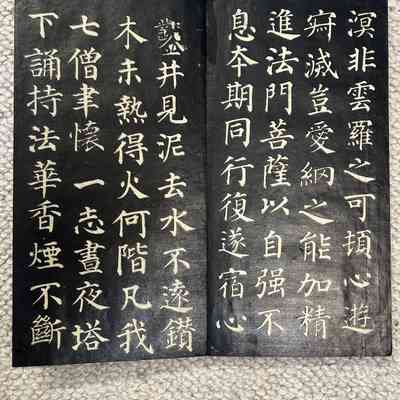 溟非雲羅之可頓心遊
寂滅豈愛網之能加精
進法門菩薩以自强不
息本期同行復遂宿心
鑿井見泥去水不遠鑽
木未熟得火何階凡我
七僧聿懷一志晝夜塔
下誦持法華香煙不斷